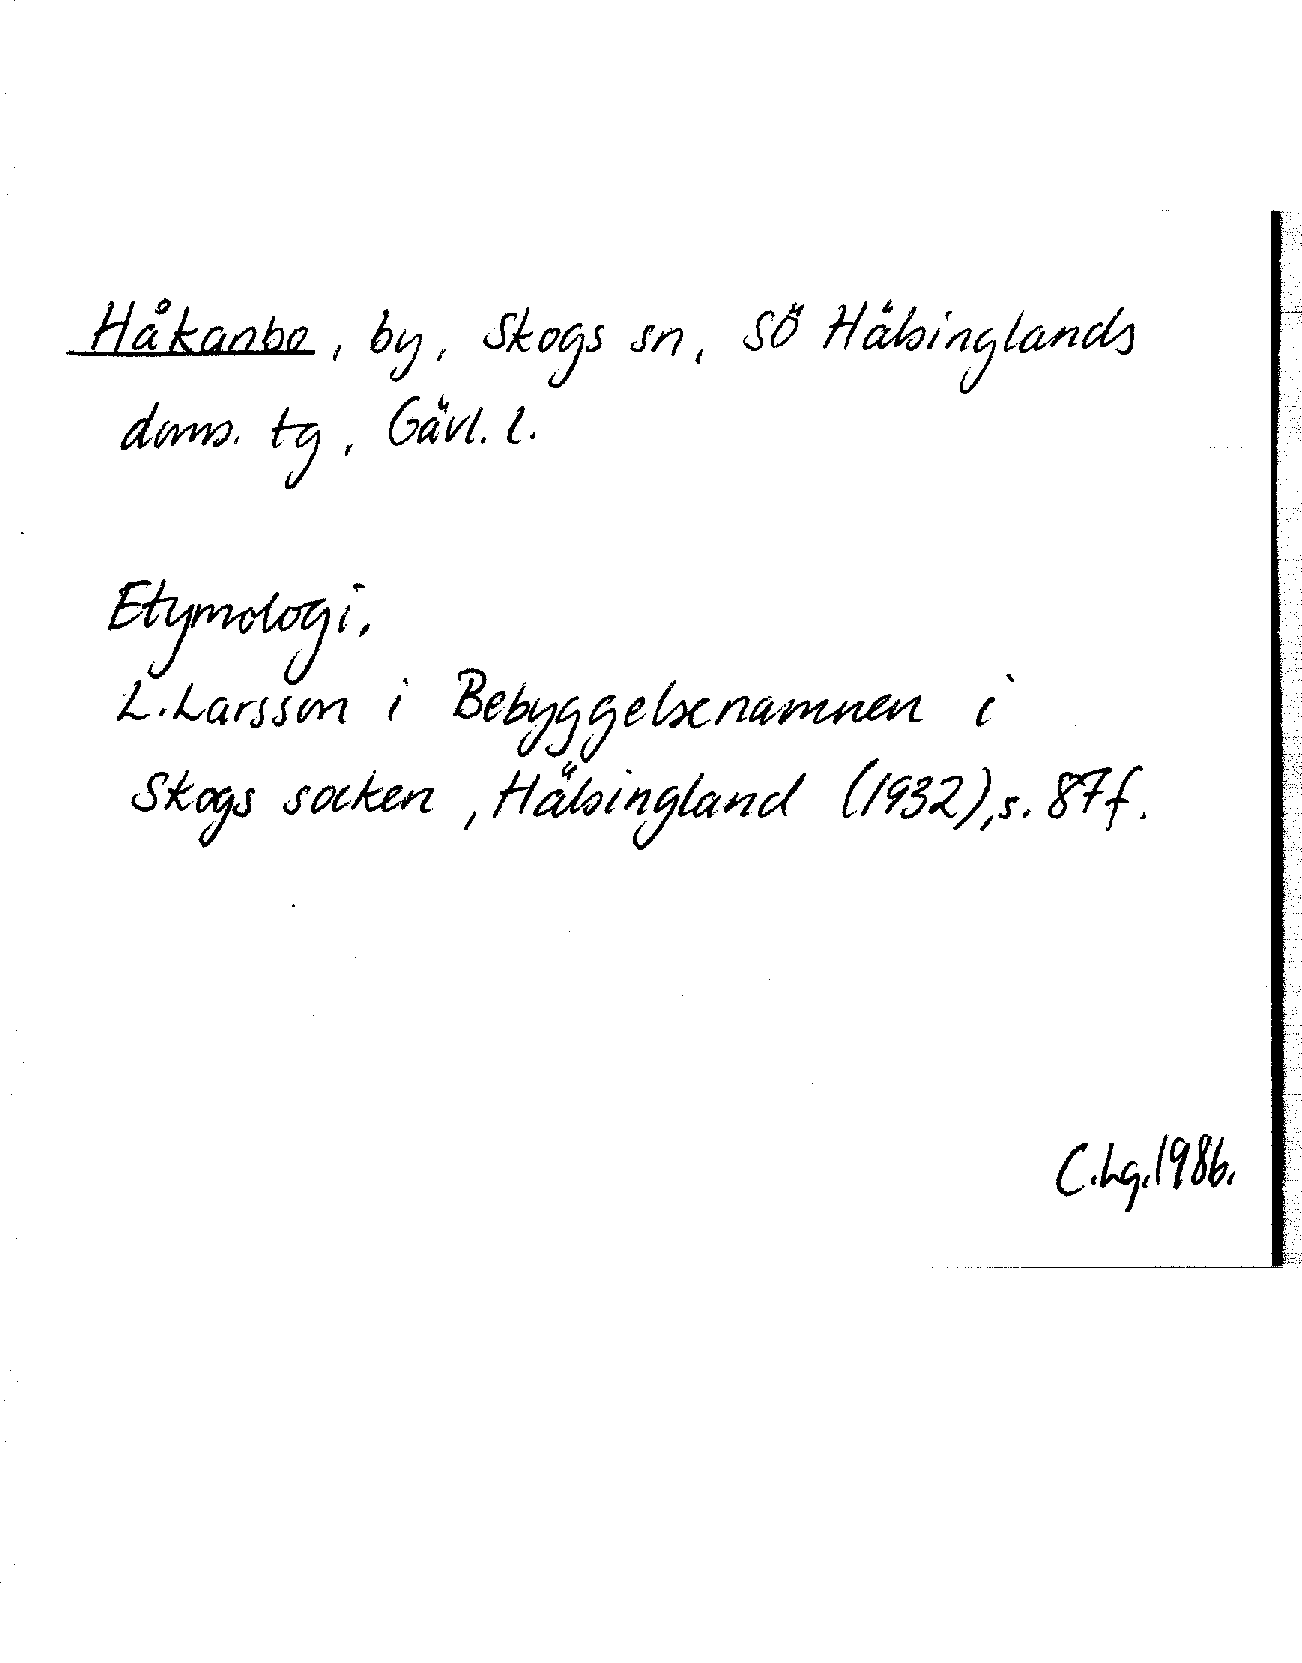 Håkanbo, by, Skogs sn, SÖ Hälsinglands
doms. tg, Gävl. l.
Etymologi.
L. Larsson i Bebyggelsenamnen i
Skogs socken, Hälsingland (1932), s. 87 f.
C.Lg. 1986.